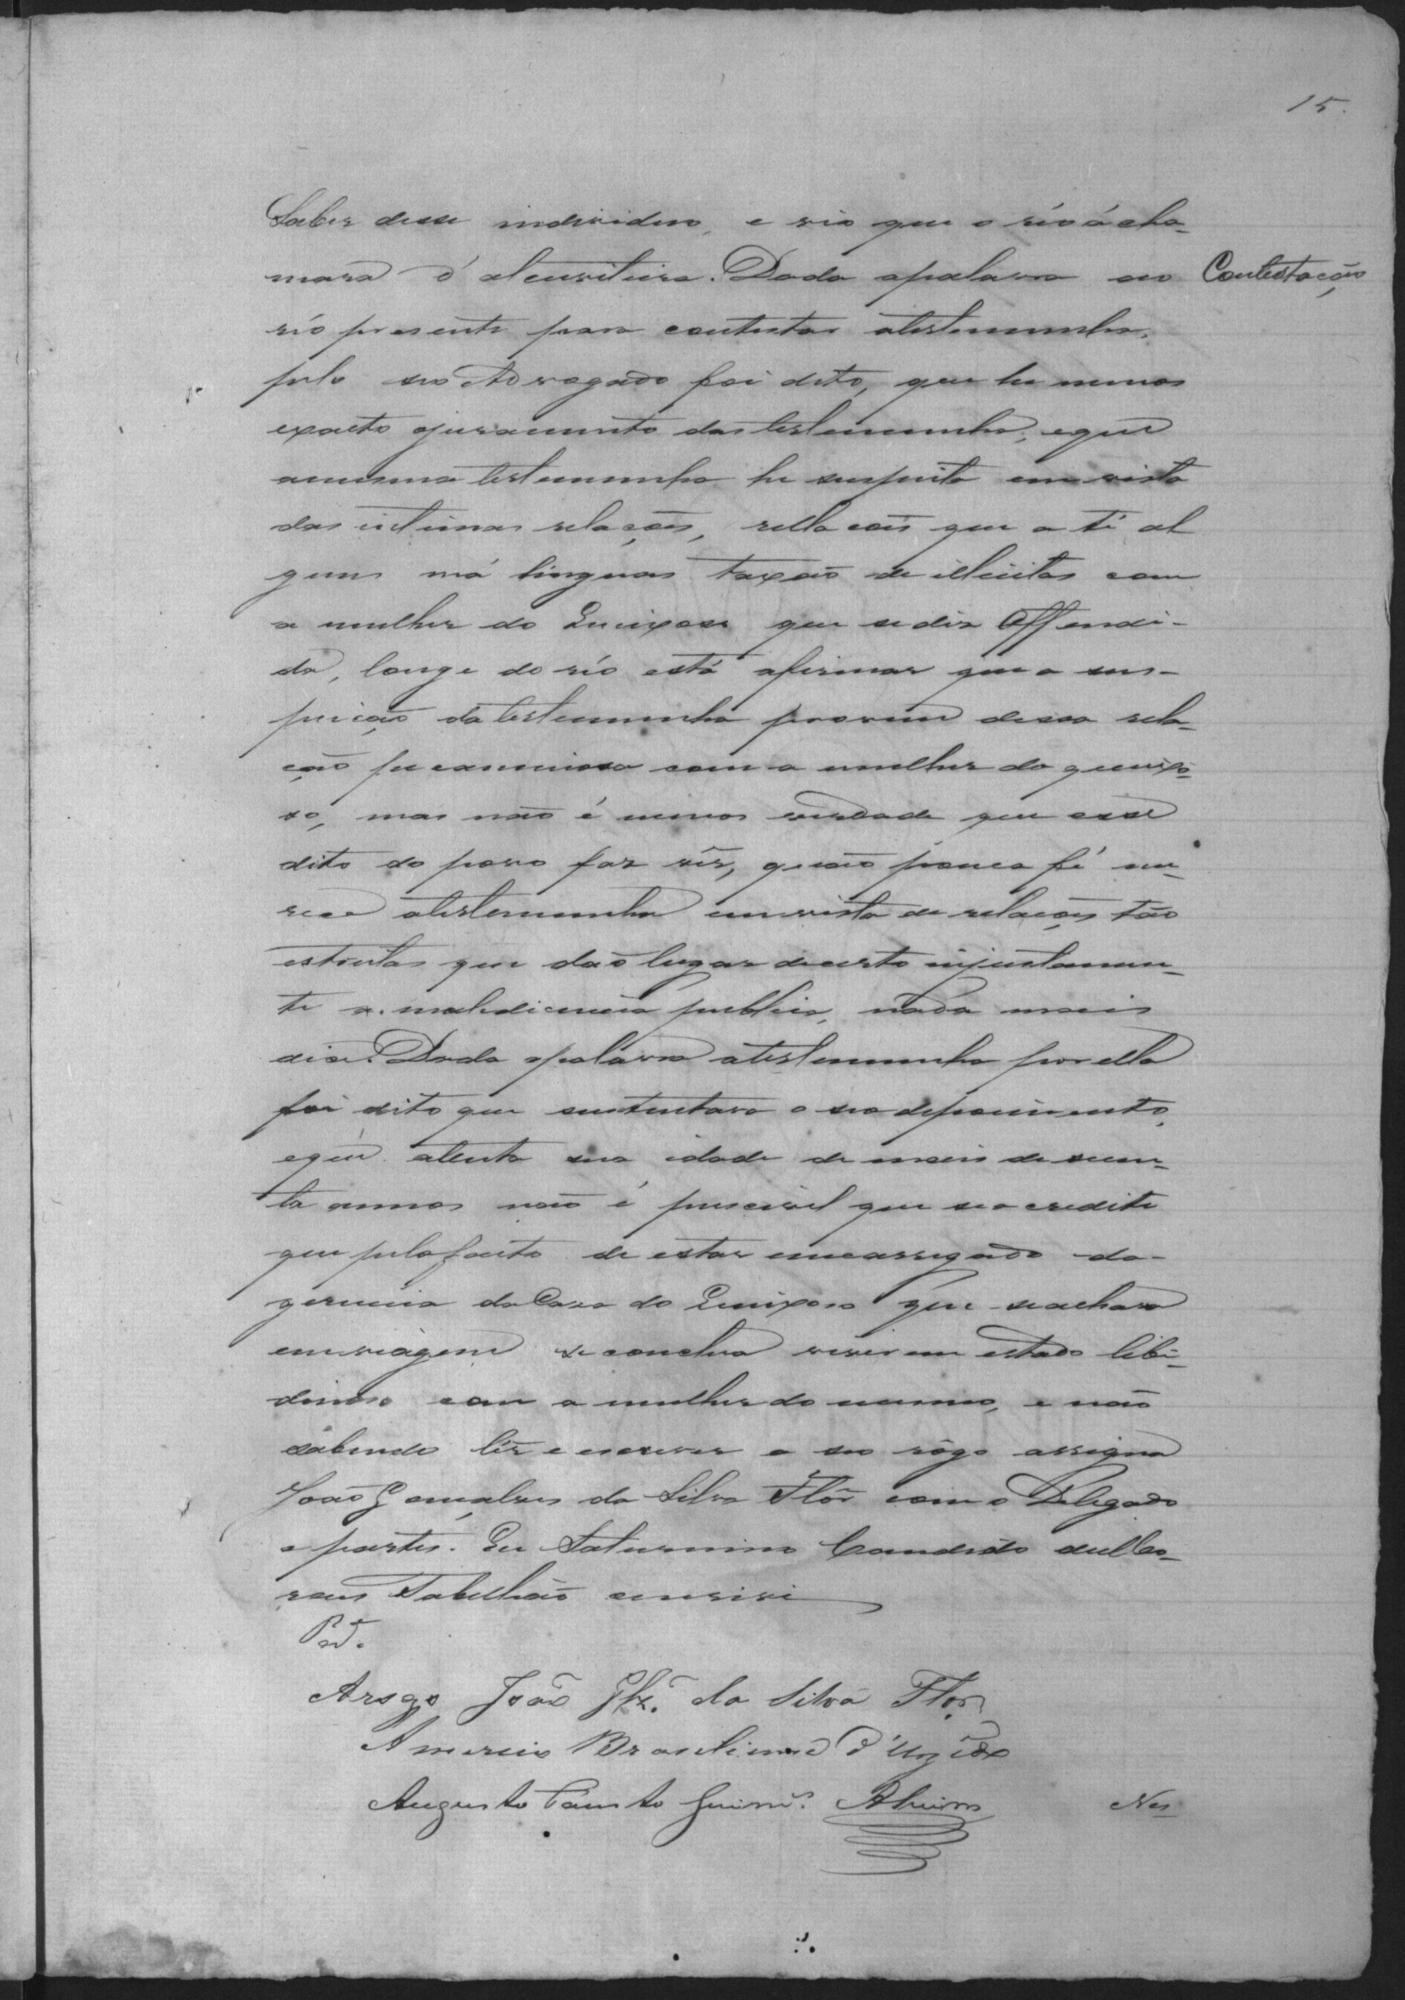 15.
Saber desse individuo, e vio que o réo á cha-
mara d'alcoviteira. Dada apalavra ao
Contestação
réo presente para contestar atestemunha,
pelo seo Advogado foi dito, que he menos
exacto ojuramento das testemunha, eque
amesma testemunha he suspeita em vista
das intimas relações, rellacoês que a té al
guns má linguas taxão de illicitas com
a mulher do Queixoso que se diz Offendi-
da, longe do réo está afirmar que a sus-
peição da testemunha provem dessa rela-
ção pecaminosa com a mulher do queixo-
so, mas não é menos verdade que esse
dito do povo faz vêr, quão pouca fé me-
rece atestemunha em vista de relações tão
estreitas que dão lugar decerto injustamen-
te a maledicencia publica, nada mais
disse. Dada apalavra atestemunha por ella
foi dito que sustentava o seo depoimento,
eque atenta sua idade de mais de secen-
ta annos não é pussivel que se acredite
que pelo facto de estar encarregado da
gerencia da Casa do Queixoso que seachava
emviagem se conclua viver em estado libi-
dinoso com a mulher do mesmo, e não
sabendo lêr e escrever a seo rôgo assigna
João Gonçalves da Silva Flôr com o Delegado
e partes. Eu Saturnino Candido
Tabellião escrevi
Arogo João Glz. da Silva Flor
Americo
Augusto Fausto Guimes.